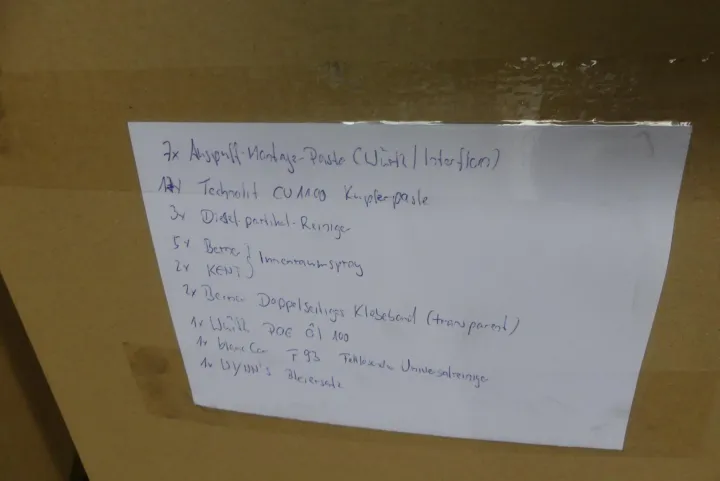 7x Auspuff-Montage-Paste (Würth/Interflon)
Technolit CU1100 Kupferpaste
3x Dieselpartikel-Reiniger
5x Berner } Innenraumspray
2x KENT
2x Berner Doppelseitiges Klebeband (transparent)
1x Würth POE Öl 100
1x F 93 Universalreiniger
1x WYNN'S Bleiersatz